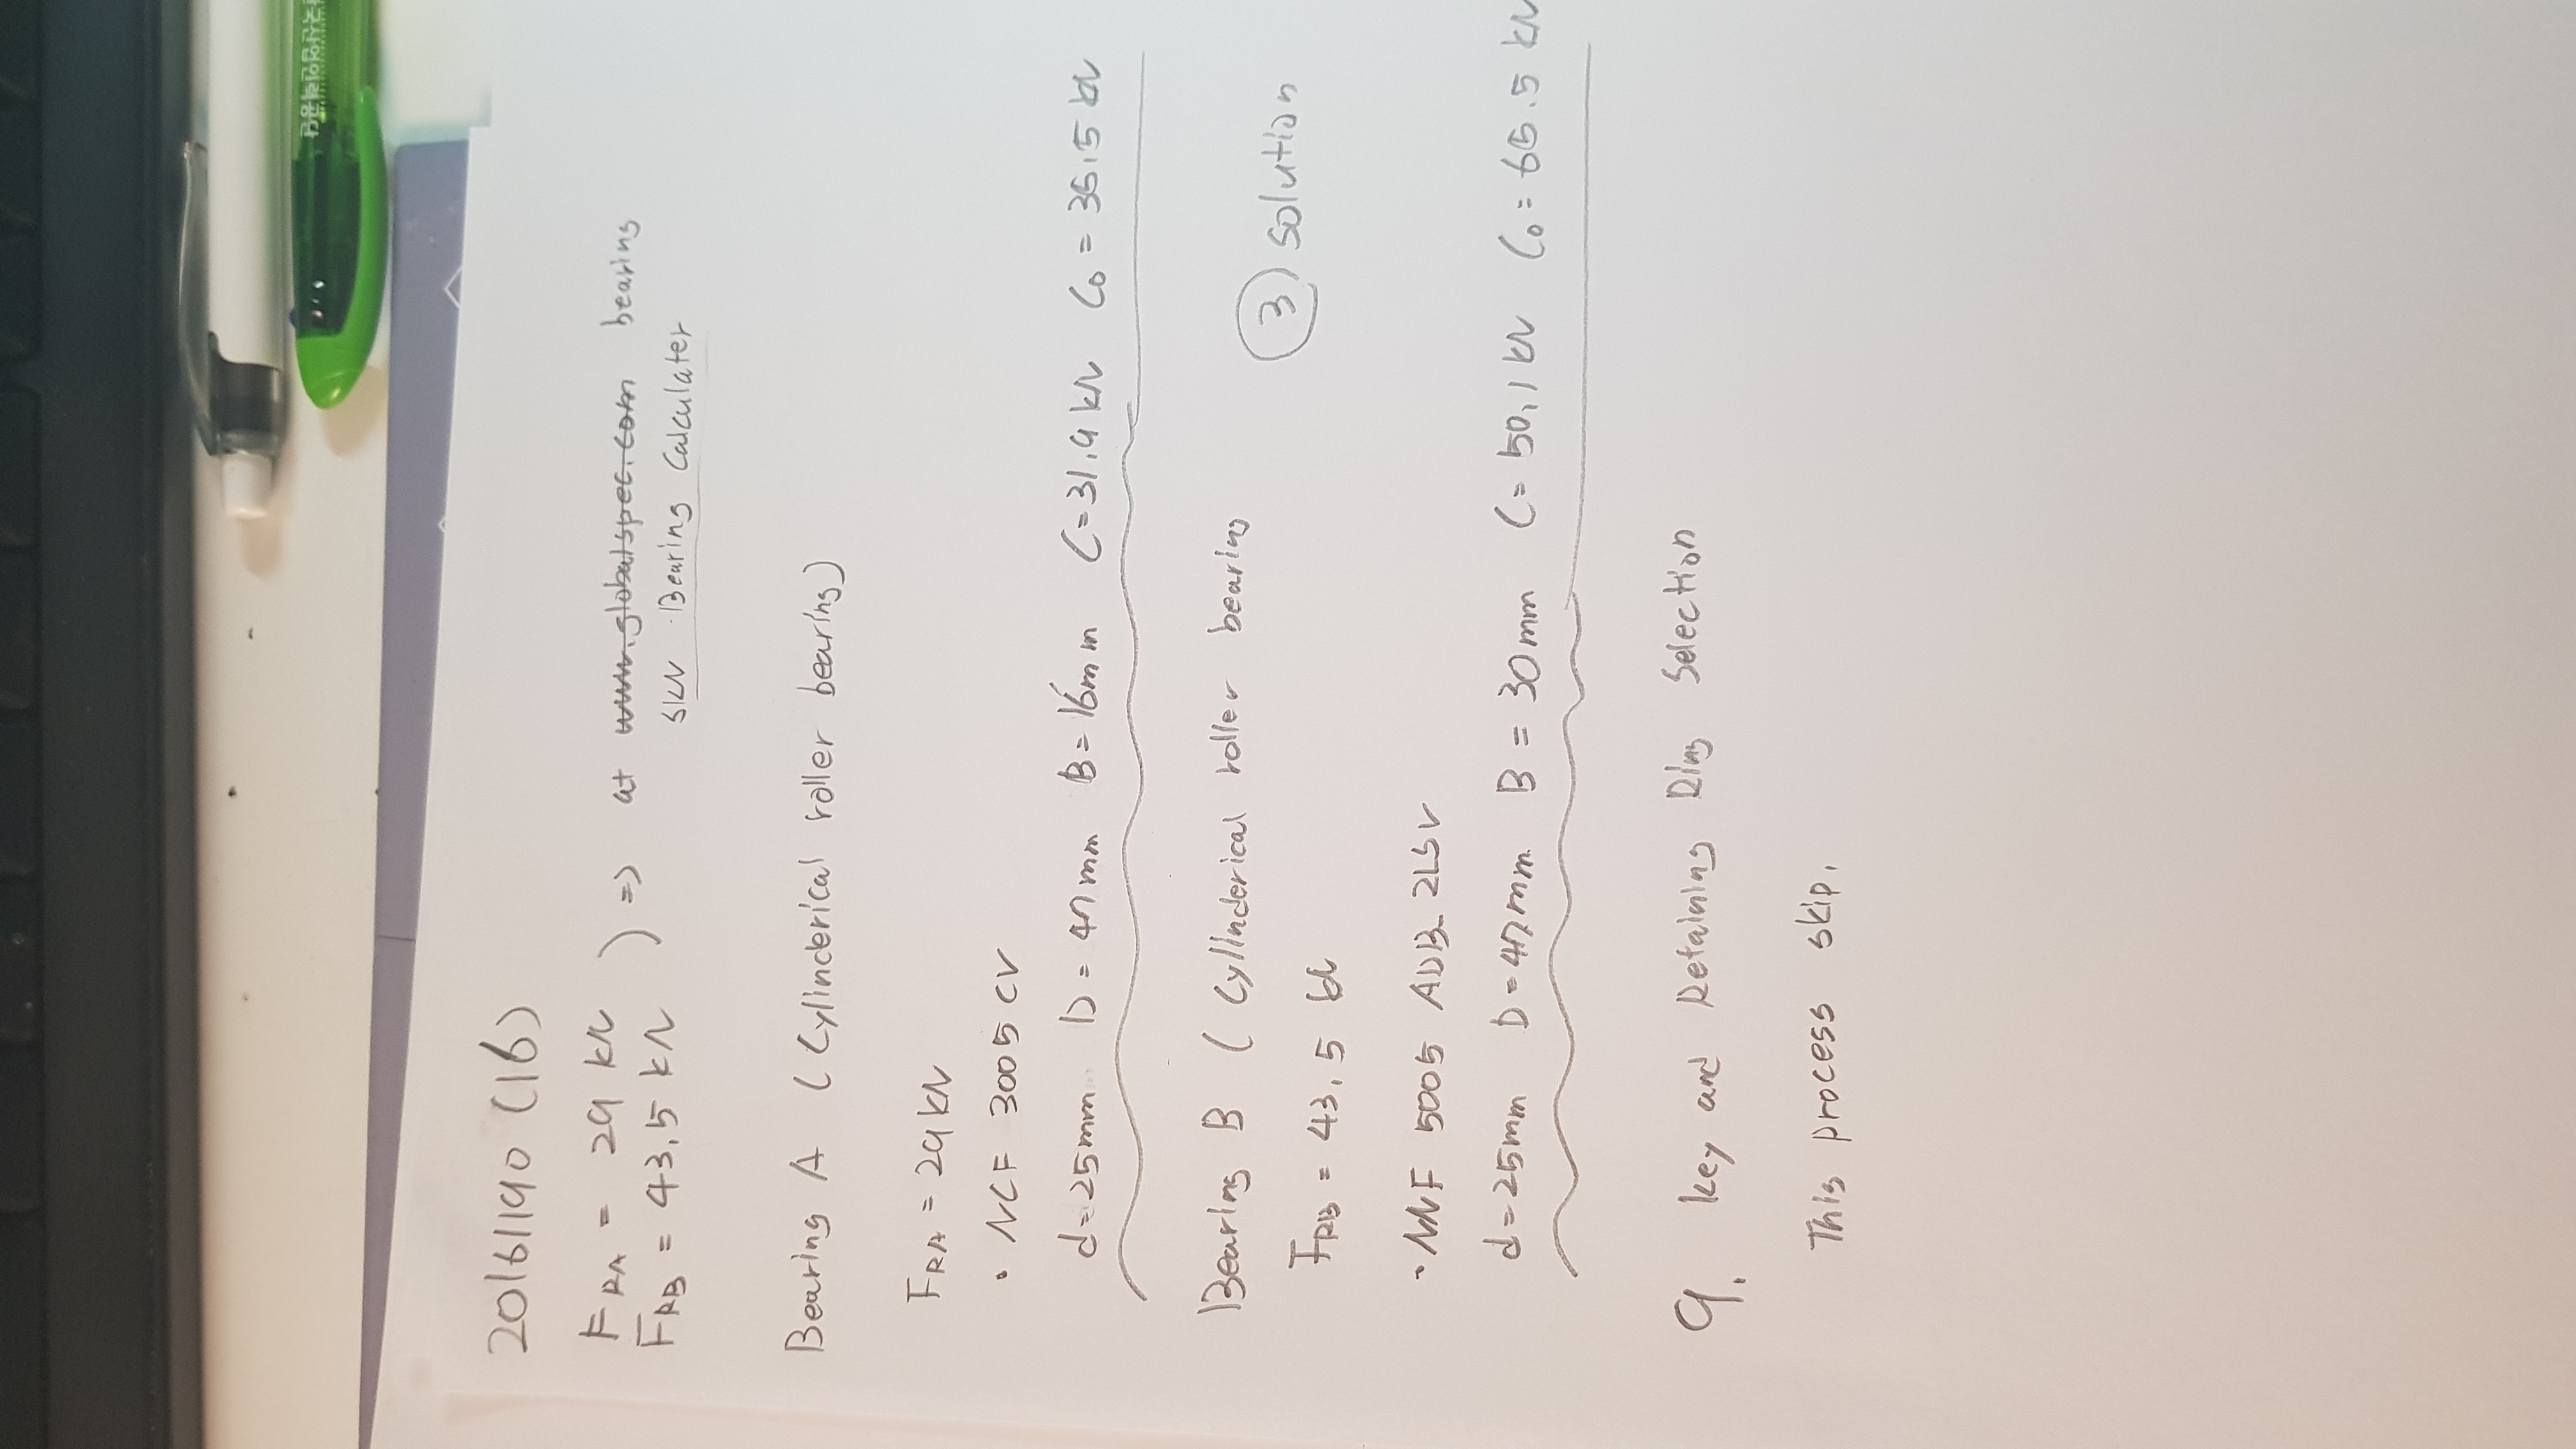 20161190 (16)
FRA = 29 kN
FRB = 43.5 kN
) => at www.globalspec.com bearing
SKN Bearing Calculater
Bearing A (Cylinderical roller bearing)
FRA = 29 kN
• NCF 3005 CV
d=25mm D=47mm B=16mm C=31.9 kN C0=35.5 kN
Bearing B (Cylinderical roller bearing
③ solution
FRB = 43.5 kN
• NNF 5005 ADB-2LSV
d=25mm D=47mm B=30mm C=50.1 kN C0=65.5 kN
9. key and Retaining Ring Selection
This process skip.